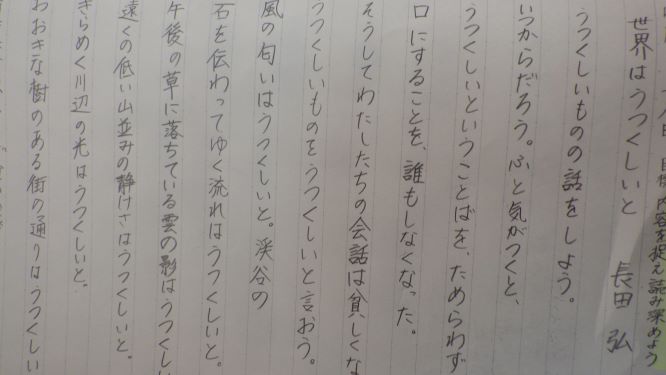 内容を捉え読み深めよう
世界はうつくしいと　長田　弘
うつくしいものの話をしよう。
いつからだろう。ふと気がつくと、
うつくしいということばを、ためらわず
口にすることを、誰もしなくなった。
そうしてわたしたちの会話は貧しくな
うつくしいものをうつくしいと言おう。
風の匂いはうつくしいと。渓谷の
石を伝わってゆく流れはうつくしいと。
午後の草に落ちている雲の影はうつくしい
遠くの低い山並みの静けさはうつくしいと。
きらめく川辺の光はうつくしいと。
おおきな樹のある街の通りはうつくしい